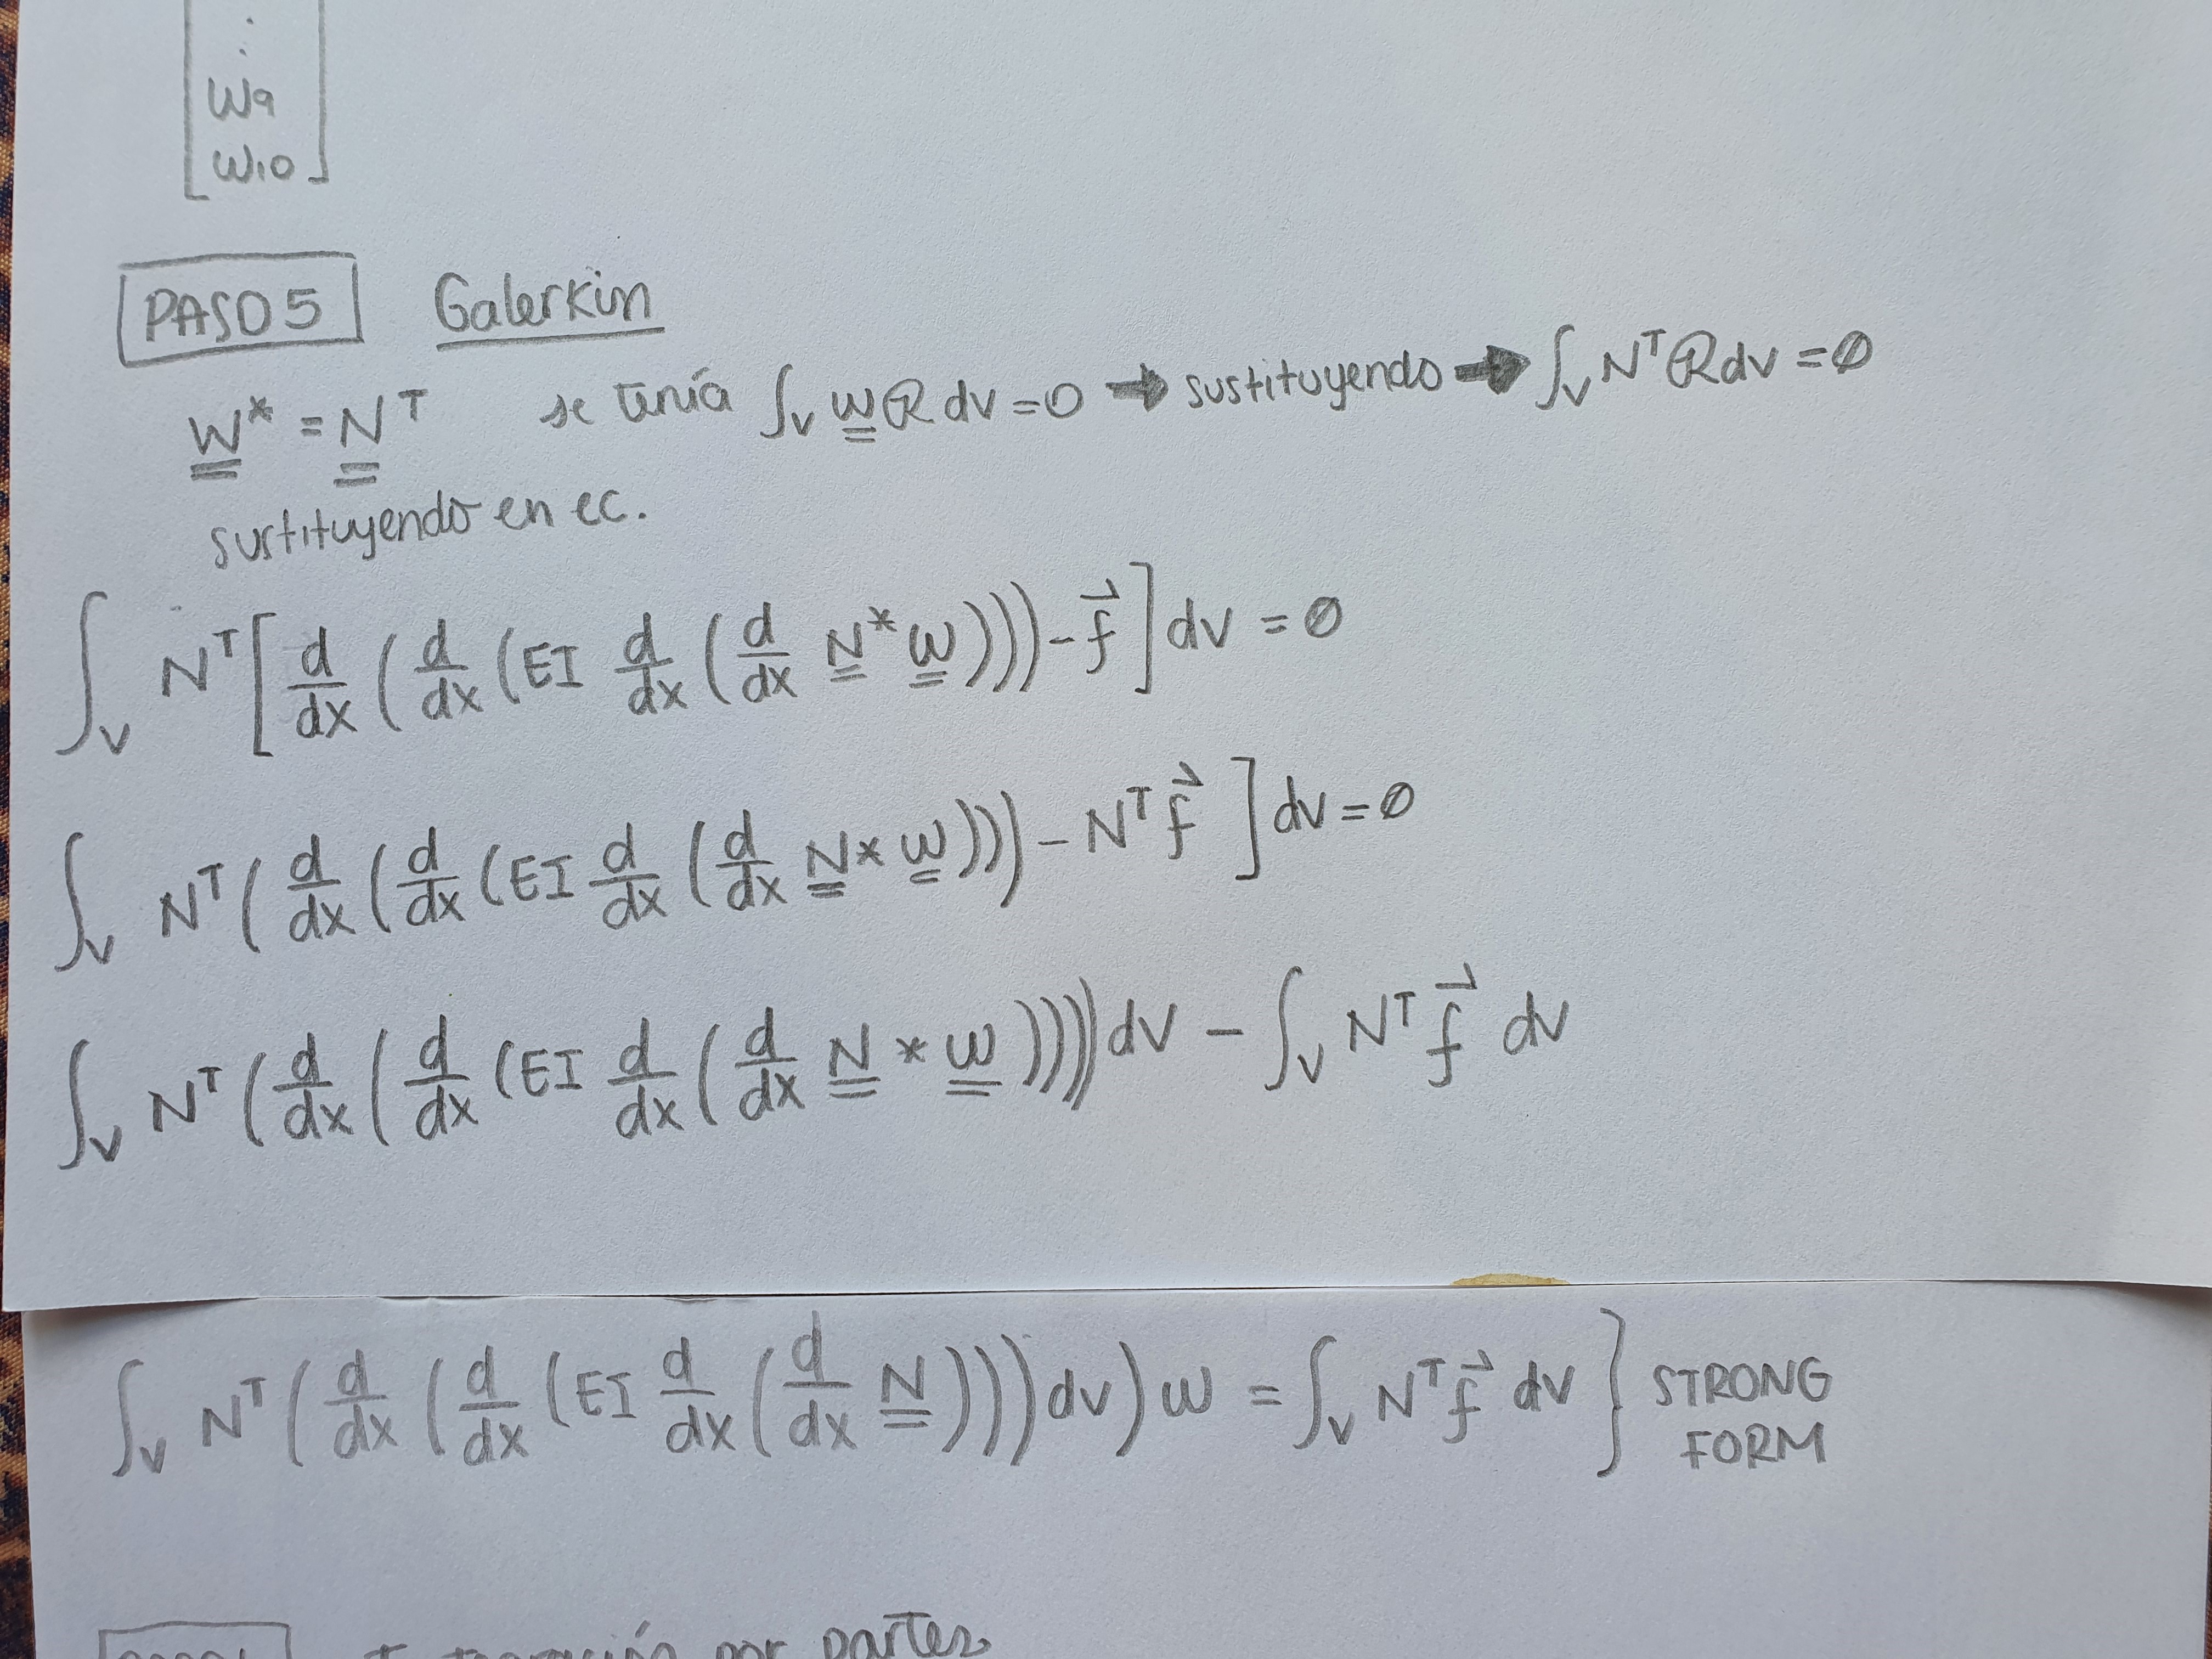 ⋮
W9
W10
PASO 5 Galerkin
W* = N^T se tenía ∫_V w R dv = 0 → sustituyendo → ∫_V N^T R dv = ∅
sustituyendo en ec.
∫_V N^T [ d/dx ( d/dx (EI d/dx ( d/dx N* w))) - f⃗ ] dv = ∅
∫_V N^T ( d/dx ( d/dx (EI d/dx ( d/dx N * w))) - N^T f⃗ ] dv = ∅
∫_V N^T ( d/dx ( d/dx (EI d/dx ( d/dx N * w)))) dv - ∫_V N^T f⃗ dv
∫_V N^T ( d/dx ( d/dx (EI d/dx ( d/dx N))) dv) w = ∫_V N^T f⃗ dv } STRONG FORM
por partes